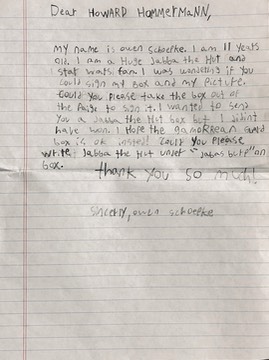 Dear HOWARD HAMMERMANN,
MY name is owen schoelke. I am 11 Years
old. I am a Huge Jabba the Hut and
star wars fan. I was wondering if You
could sign my Box and my Picture.
Could You Please take the box out of
the Paige to sign it. I wanted to send
You a Jabba the Hut box but I didnt
have won. I Hope the gamorrean Guard
box is ok insted! Could You Please
write, Jabba the Hut under "Jabas on
box.
thank You so much!
sincerly, owen schoelke